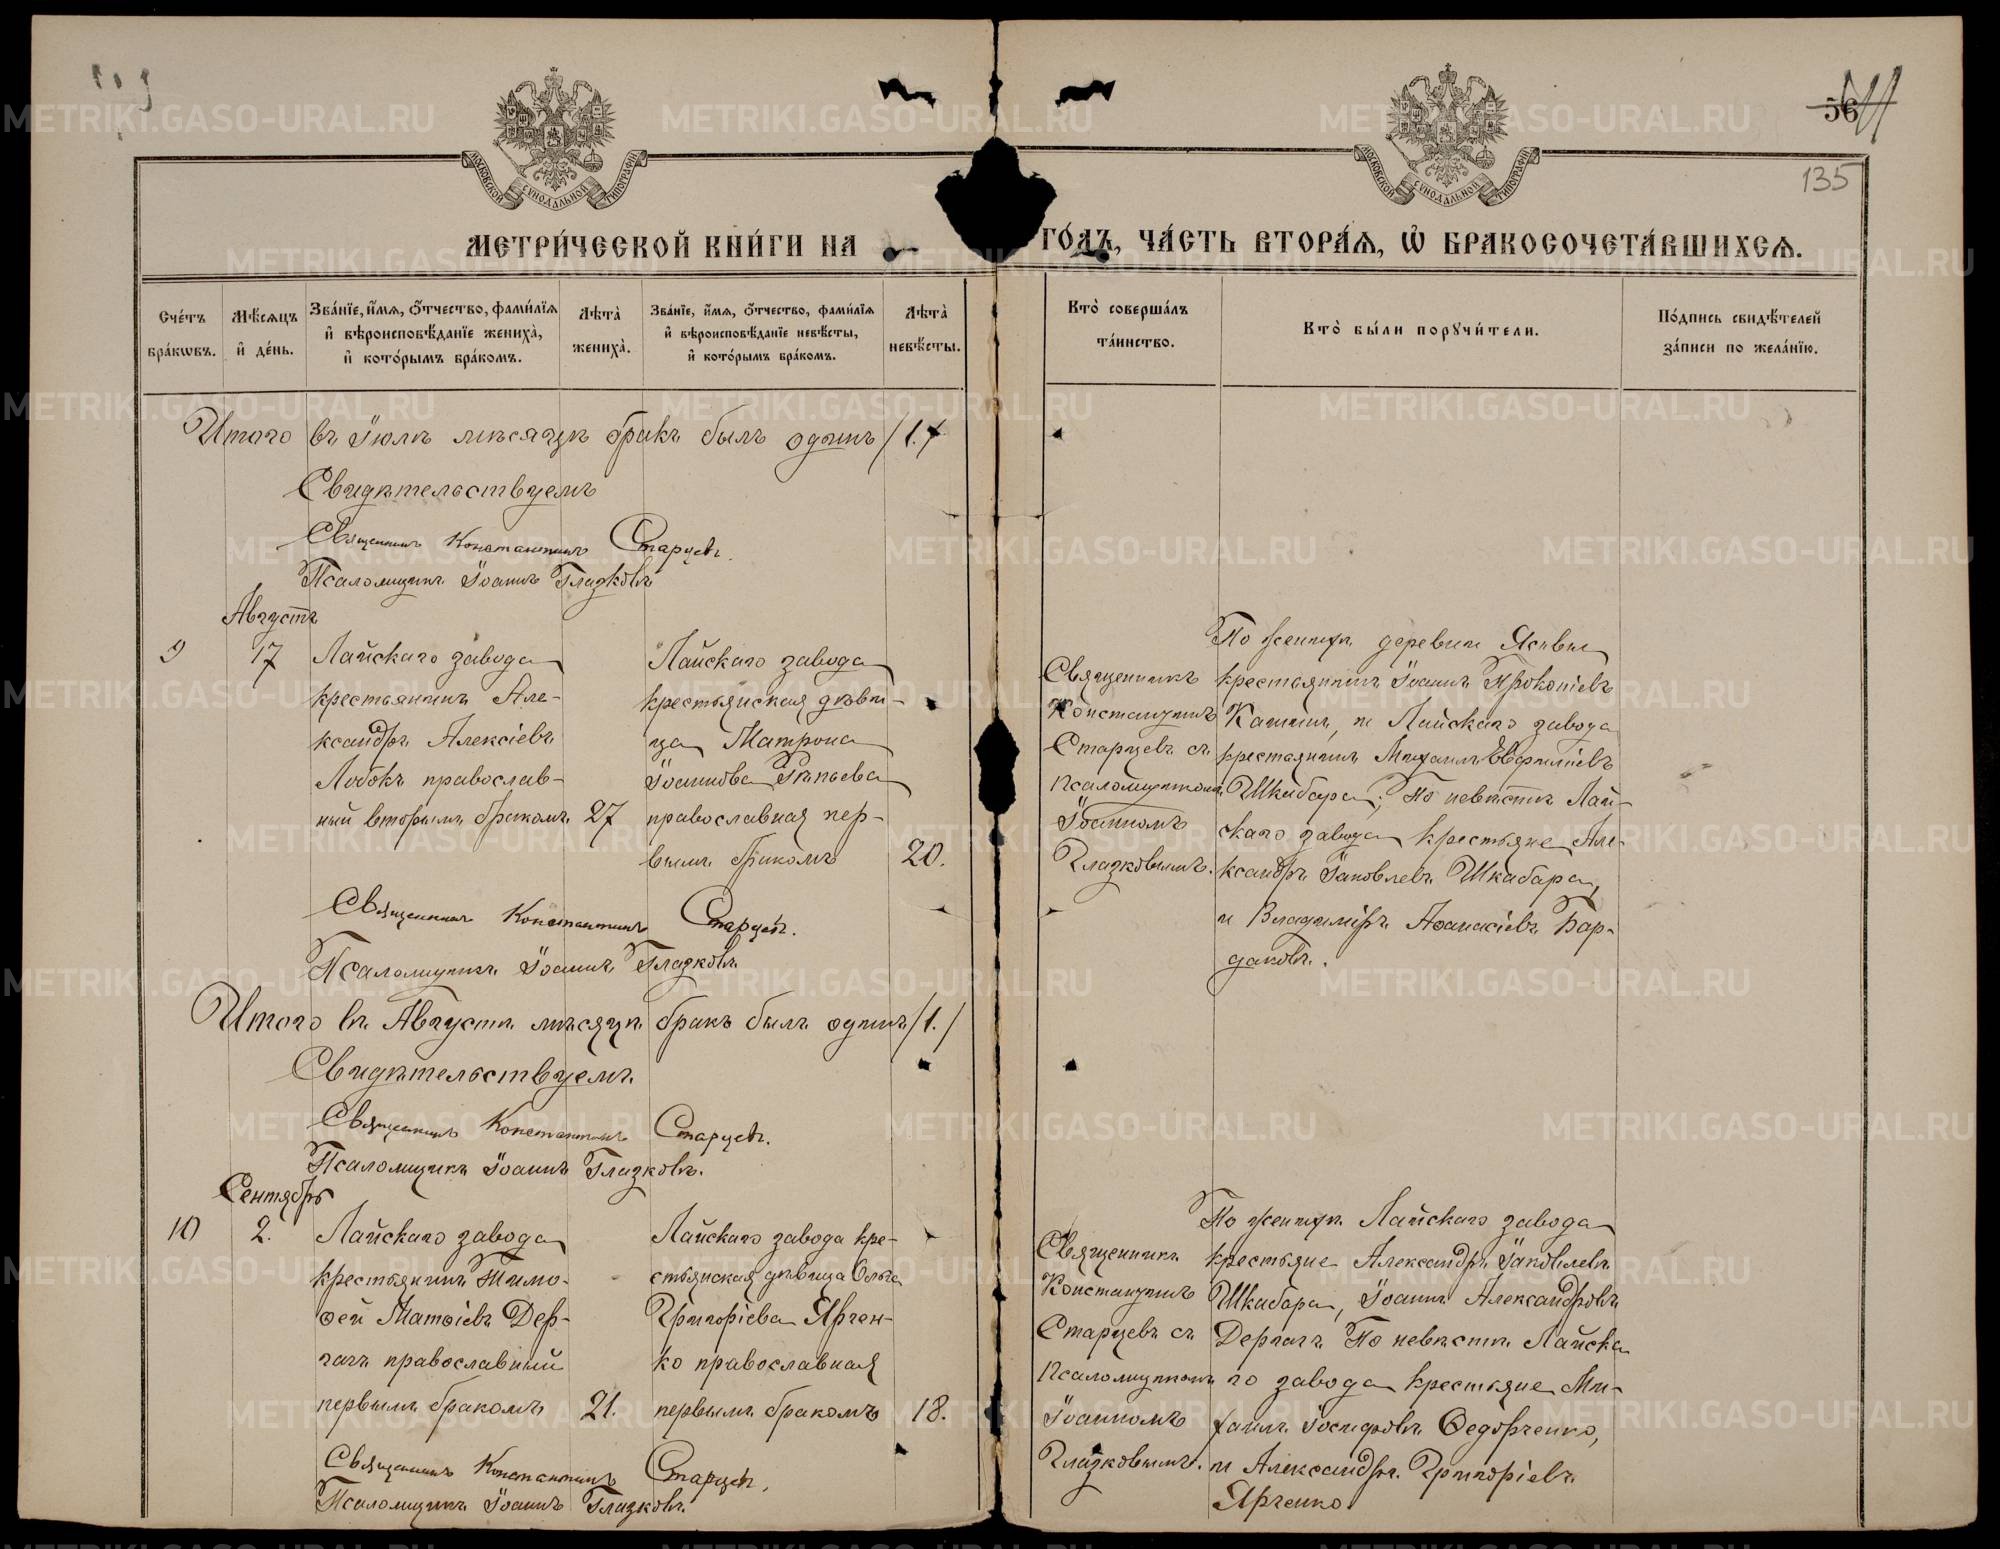 135
МЕТРИ́ЧЕСКОЙ КНИ́ГИ НА ГО́ДЪ, ЧА́СТЬ ВТОРА́Я, Ѡ҆ БРАКОСОЧЕТА́ВШИХСЯ.
МОСКОВСКОЙ СѴНОДАЛЬНОЙ ТИПОГРАФІИ
МОСКОВСКОЙ СѴНОДАЛЬНОЙ ТИПОГРАФІИ
Сче́тъ бра́ковъ.
Мѣ́сяцъ и҆ де́нь.
Зва́нїе, и҆́мя, ѻ҆́тчество, фами́лїя и҆ вѣроисповѣ́данїе жениха̀, и҆ кото́рымъ бра́комъ.
Лѣта̀ жениха̀.
Зва́нїе, и҆́мя, ѻ҆́тчество, фами́лїя и҆ вѣроисповѣ́данїе невѣ́сты, и҆ кото́рымъ бра́комъ.
Лѣта̀ невѣ́сты.
Кто̀ соверша́лъ та́инство.
Кто̀ бы́ли порꙋчи́тели.
По́дпись свидѣ́телей за́писи по жела́нїю.
Итого въ Іюлѣ мѣсяцѣ бракъ былъ одинъ /1./
Свидѣтельствуемъ
Священникъ Константинъ Старцевъ.
Псаломщикъ Іоаннъ Глазковъ
Августъ
9
17
Лайскаго завода
крестьянинъ Але-
ксандръ Алексіевъ
Лобокъ православ-
ный вторымъ бракомъ.
27
Лайскаго завода
крестьянская дѣви-
ца Матрона
Іоаннова Рѣпьева
православная пер-
вымъ бракомъ
20.
Священникъ
Константинъ
Старцевъ съ
псаломщикомъ
Іоанномъ
Глазковымъ.
По женихѣ деревни Ясьвы
крестьянинъ Іоаннъ Прокопіевъ
Кашинъ, и Лайскаго завода
крестьянинъ Михаилъ Евфиміевъ
Шкабара; По невѣстѣ Лай-
скаго завода крестьяне Але-
ксандръ Іаковлевъ Шкабара,
и Владиміръ Аѳанасіевъ Бар-
даковъ.
Священникъ Константинъ Старцевъ.
Псаломщикъ Іоаннъ Глазковъ
Итого въ Августѣ мѣсяцѣ бракъ былъ одинъ /1./
Свидѣтельствуемъ.
Священникъ Константинъ Старцевъ.
Псаломщикъ Іоаннъ Глазковъ.
Сентябрь
10
2.
Лайскаго завода
крестьянинъ Тимо-
ѳей Матѳіевъ Дер-
гачъ православный
первымъ бракомъ
21.
Лайскаго завода кре-
стьянская дѣвица Ольга
Григоріева Ярчен-
ко православная
первымъ бракомъ
18.
Священникъ
Константинъ
Старцевъ съ
псаломщикомъ
Іоанномъ
Глазковымъ.
По женихѣ Лайскаго завода
крестьяне Александръ Іаковлевъ
Шкабара, Іоаннъ Александровъ
Дергачъ По невѣстѣ Лайска
го завода крестьяне Ми-
хаилъ Іосифовъ Ѳедорченко,
и Александръ Григоріевъ
Ярченко
Священникъ Константинъ Старцевъ.
Псаломщикъ Іоаннъ Глазковъ.
METRIKI.GASO-URAL.RU